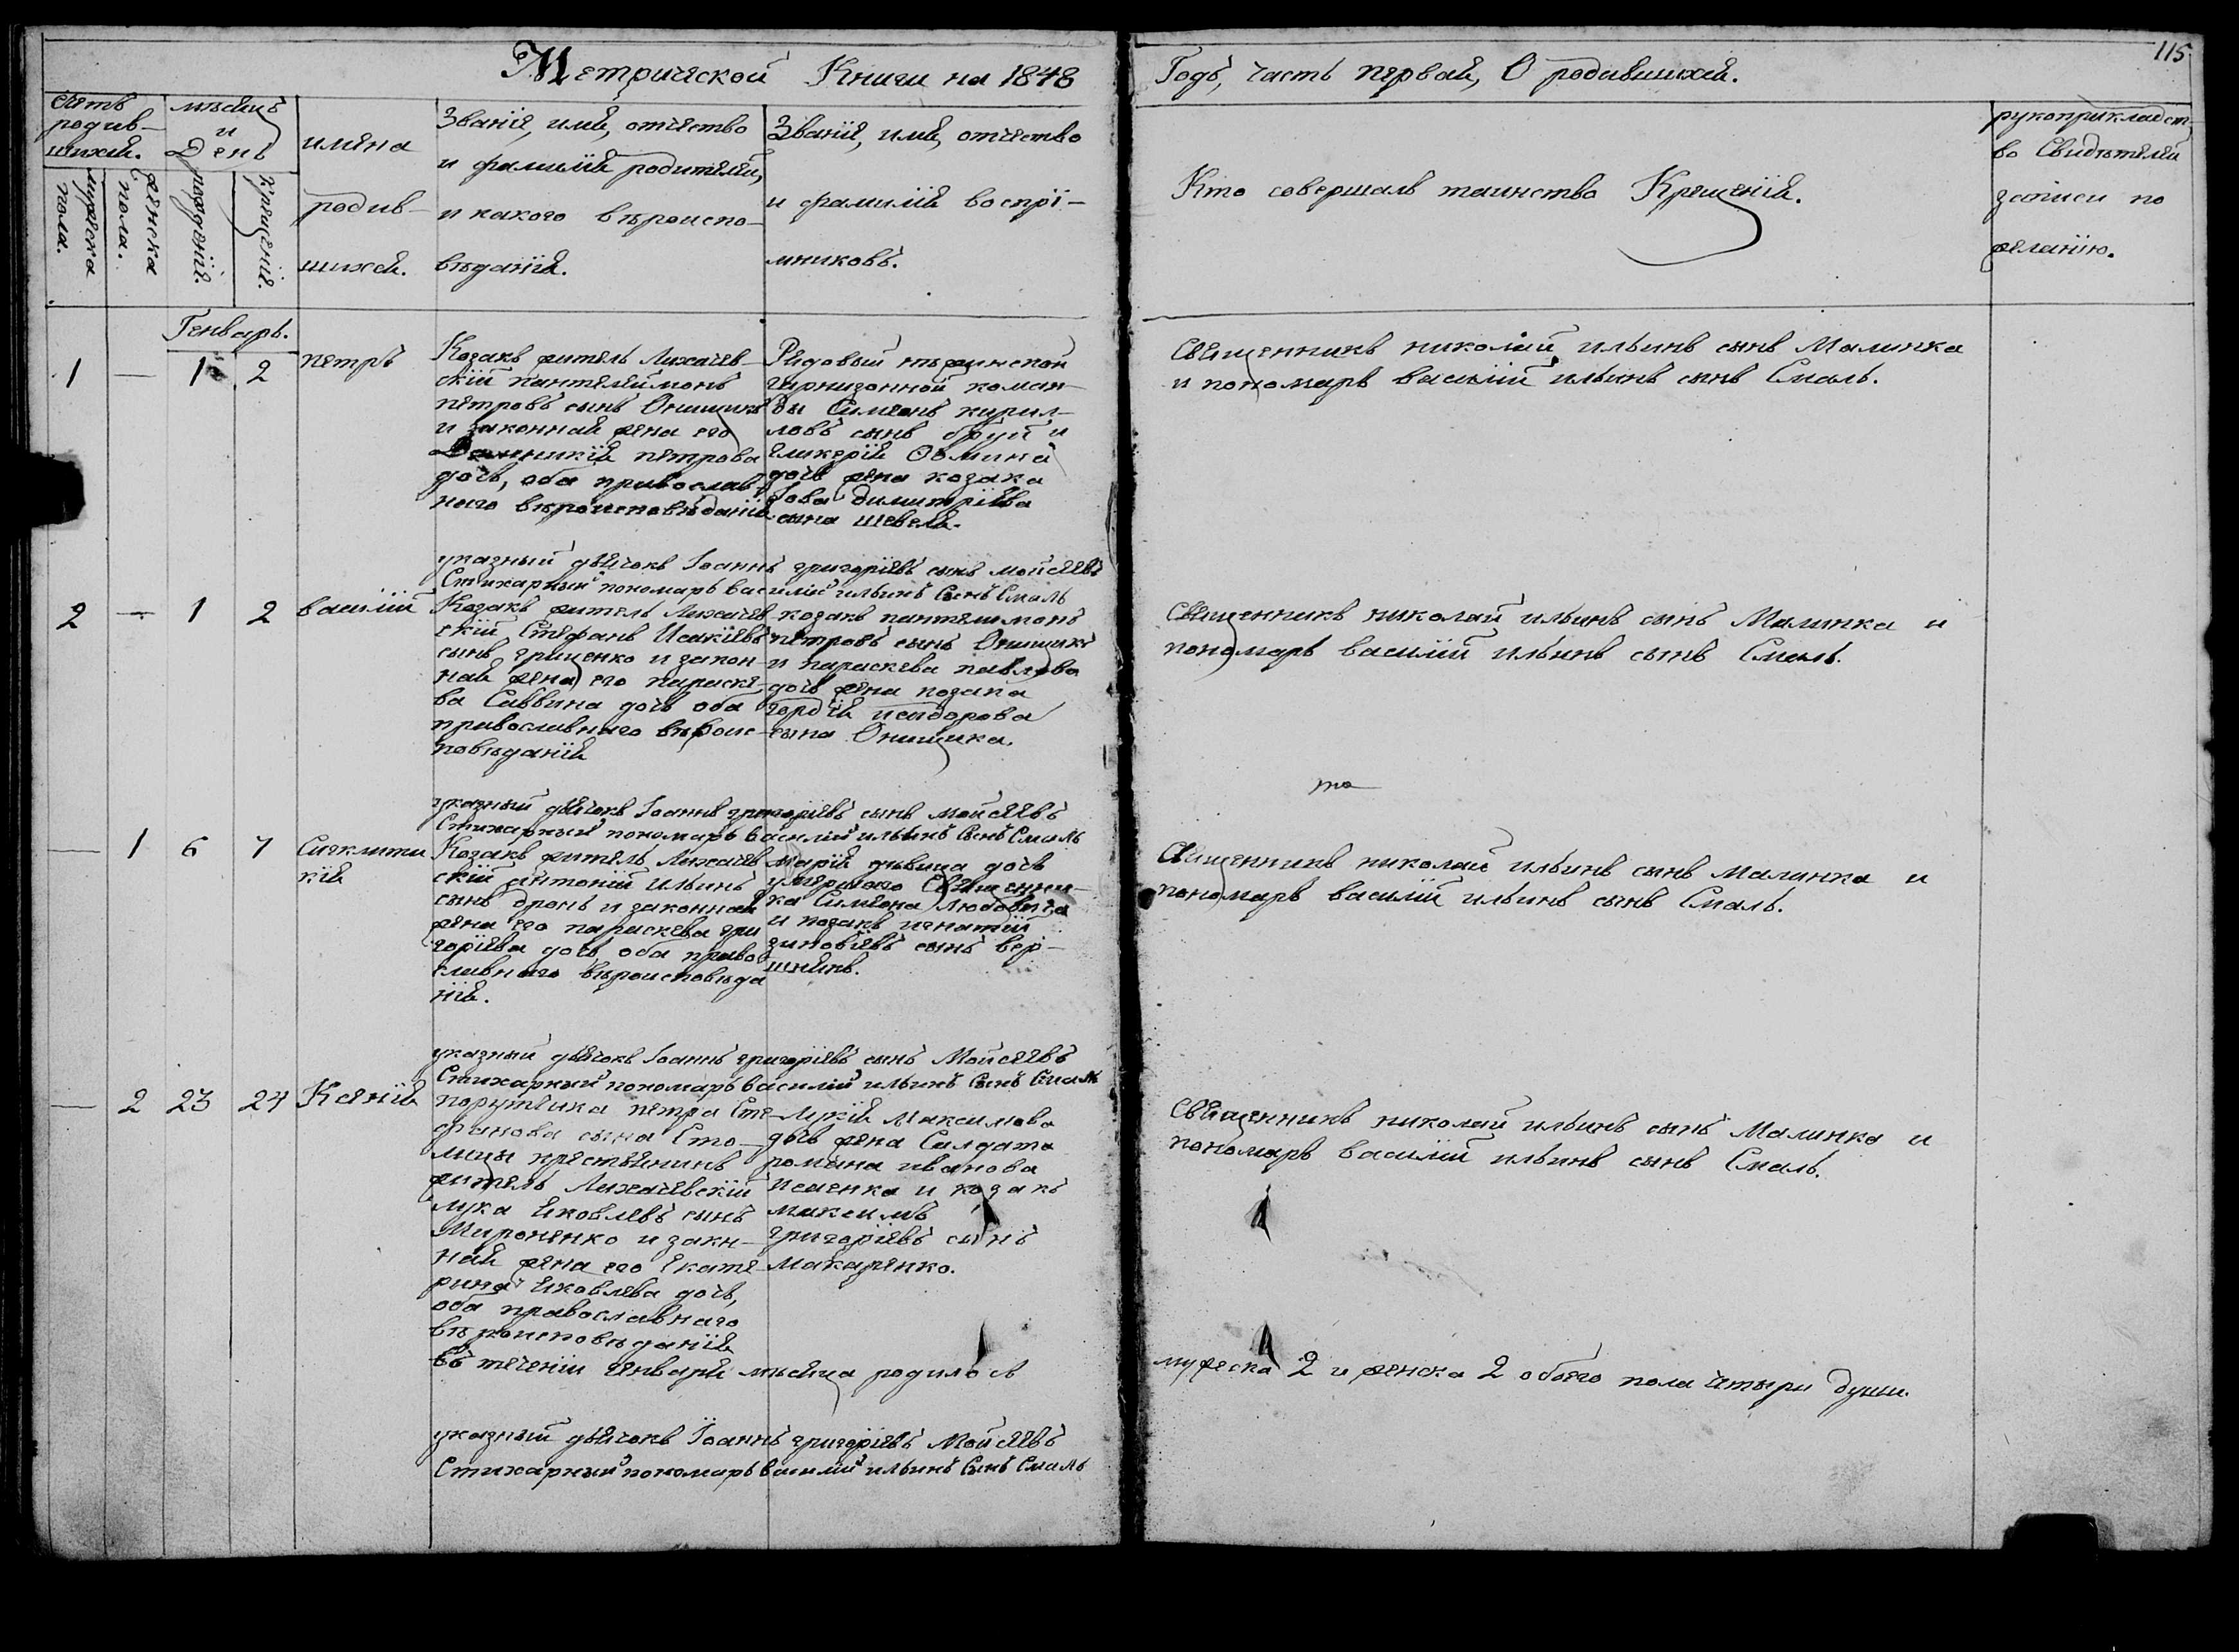 115
Метрической Книги на 1848 Годъ, часть первая, О родившихся.
Счетъ родив-шихся.
мужеска пола.
женска пола.
мѣсяцъ и День
рожденія.
крещенія.
имена родив-шихся.
Званіе, имя, отчество
и фамилія родителей,
и какого вѣроиспо-
вѣданія.
Званіе, имя, отчество
и фамилія воспрі-
мниковъ.
Кто совершалъ таинство Крещенія.
рукоприкладст
во Свидѣтелей
записи по
желанію.
Генварь.
1 — 1 2 петръ
Козакъ житель Лихачев-
скій пантелеймонъ
петровъ сынъ Онищикъ
и законная жена его
Домникія петрова
дочь, оба православ
наго вѣроисповѣданія
Рядовый нѣжинской
гарнизонной коман-
ды Симеонъ кирил-
ловъ сынъ бруй и
гликерія Фомина
дочь жена козака
Іова димитріева
сына шевеля.
Священникъ николай ильинъ сынъ Малинка
и пономарь василій ильинъ сынъ Смаль.
указный дьячокъ Іоаннъ григоріевъ сынъ мойсеевъ
Стихарный пономарь василій ильинъ Сынъ Смаль
2 — 1 2 василій
Козакъ житель Лихачев
скій Стефанъ Исакіевъ
сынъ гриценко и закон-
ная жена его параске-
ва Саввина дочь оба
православнаго вѣроис-
повѣданія
козакъ пантелимонъ
петровъ сынъ Онищикъ
и параскева павлова
дочь жена козака
гордѣя исидорова
сына Онищика.
Священникъ николай ильинъ сынъ Малинка и
пономарь василій ильинъ сынъ Смаль.
то
указный дьячокъ Іоаннъ григоріевъ сынъ мойсеевъ
Стихарный пономарь василій ильинъ Сынъ Смаль
— 1 6 7 Сигклити
кія
Козакъ житель Лихачев
скій антоній ильинъ
сынъ дронь и законная
жена его параскева гри
горіева дочь оба право
славнаго вѣроисповѣда
нія.
марія дѣвица дочь
умершаго Священни-
ка Симеона Любовича
и козакъ игнатій
зиновіевъ сынъ вер-
шнякъ.
Священникъ николай ильинъ сынъ Малинка и
пономарь василій ильинъ сынъ Смаль.
указный дьячокъ Іоаннъ григоріевъ сынъ Мойсеевъ
Стихарный пономарь василій ильинъ Сынъ Смаль
— 2 23 24 Ксенія
порутчика петра Сте-
фанова сына Сто-
лицы крестьянинъ
житель Лихачевскій
лука Яковлевъ сынъ
Мироненко и закн-
ная жена его Екате
рина Яковлева дочь,
оба православнаго
вѣроисповѣданія
Лукія Максимова
дочь жена Салдата
романа иванова
исаенка и козакъ
максимъ
григоріевъ сынъ
макаренко.
Священникъ николай ильинъ сынъ Малинка и
пономарь василій ильинъ сынъ Смаль.
въ теченіи генваря мѣсяца родилось мужеска 2 и женска 2 обоего пола четыри души.
указный дьячокъ Іоаннъ григоріевъ Мойсеевъ
Стихарный пономарь василій ильинъ Сынъ Смаль